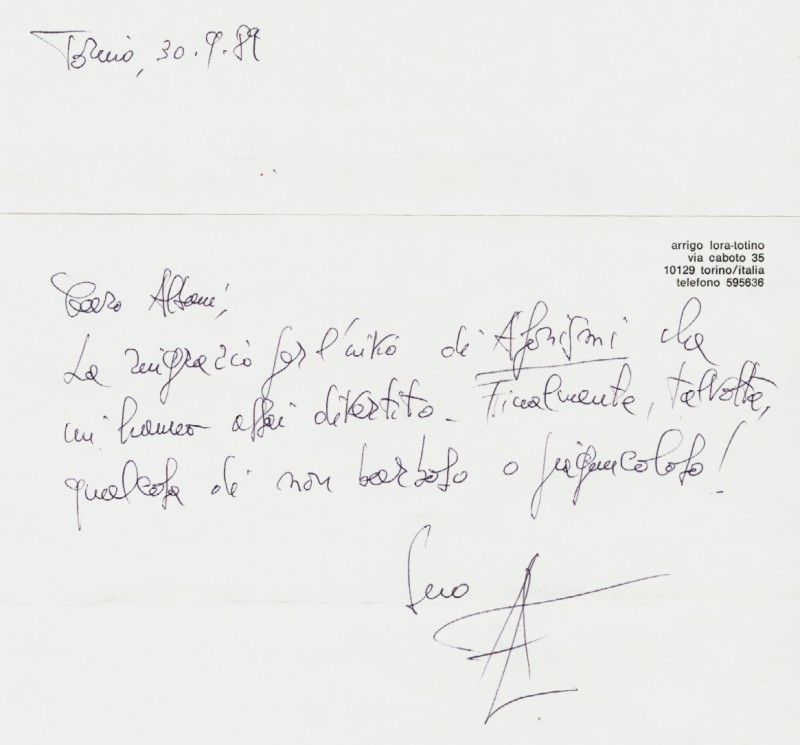 Torino, 30.9.89
arrigo lora-totino
via caboto 35
10129 torino/italia
telefono 595636
Caro Albani,
La ringrazio per l'invio di Aforismi che
mi hanno assai divertito. Finalmente, talvolta,
qualcosa di non barboso o piagnucoloso!
Suo